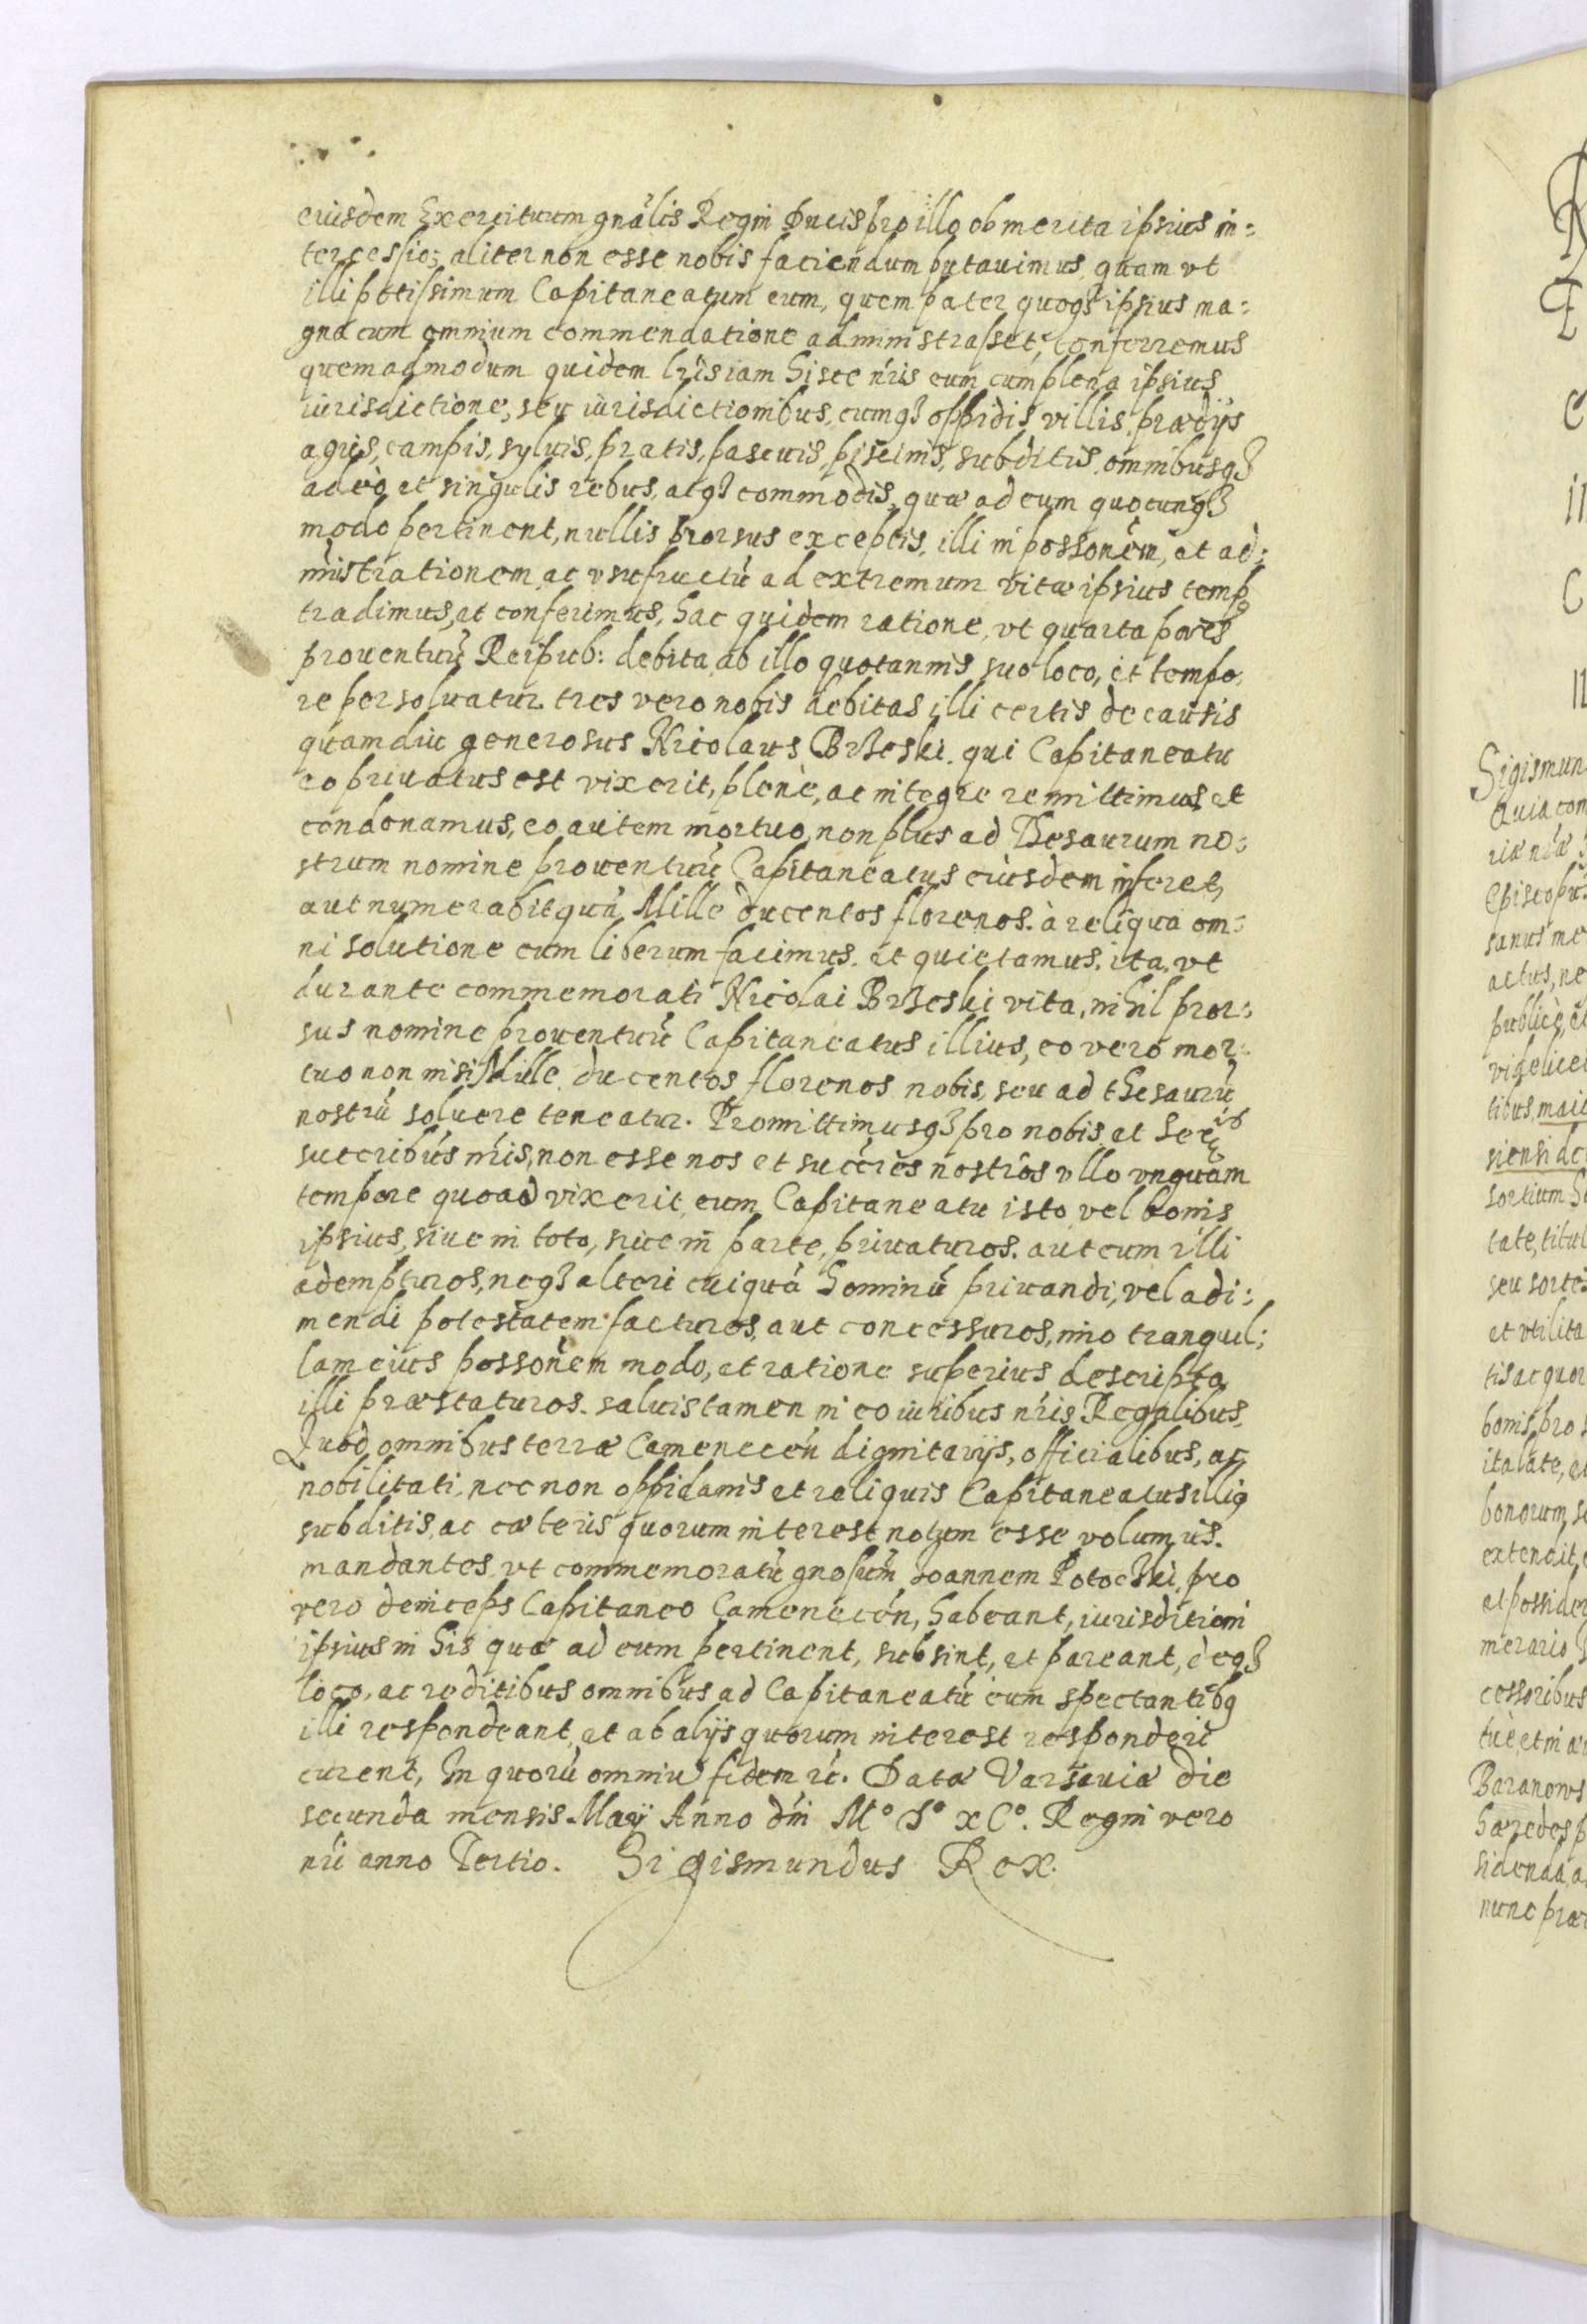 eiusdem Exercituum gnãlis Regni Ducis pro illo ob merita ipsius in:
tercessio; aliter non esse nobis faciendum putauimus, quam vt
illi pttissimum Capitaneatum eum, quem pater quoqз ipsius ma:
gna cum omnium commendatione administrasset, conferremus
quemadmodum quidem lris iam hisce nris eum cum plena ipsius
iurisdictione, seu iurisdictionibus, cumqз oppidis villis, prædijs
agris, campis, syluis, pratis, pascuis, piscinis, subditis, omnibusqз
adeò et singulis rebus, atqз commodis, quæ ad eum quocunqз
modo pertinent, nullis prorsus exceptis, illi in possonem, et ad:
mistrationem ac vsufructú ad extremum vitæ ipsius temp9
tradimus, et conferimus, hac quidem ratione, vt quarta pars
prouentuú Reipub: debita ab illo quotannis suo loco, et tempo,
re persoluatur. tres vero nobis debitas illi certis de causis
quamdiu generosus Nicolaus Brzeski. qui Capitaneatu
eo priuatus est vixerit, plenè, ac integre remittimus et
condonamus, eo autem mortuo, non plus ad Thesaurum no:
strum nomine prouentuú Capitaneatus eiusdem inferet,
aut numerabit quá Mille ducentos florenos. à reliqua om:
ni solutione eum liberum facimus. et quietamus. ita, vt
durante commemorati Nicolai Brzeski vita, nihil pror:
sus nomine prouentuú Capitaneatus illius, eo vero mor:
tuo non nisi Mille ducentos florenos nobis, seu ad thesaurú
nostrú soluere teneatur. Promittimusqз pro nobis et Ser
succribus nris, non esse nos et succres nostros vllo vnquam
tempore quoad vixerit, eum Capitaneatu isto vel bonis
ipsius, siue in toto, siue in parte, priuaturos. aut eum illi
adempturos, neqз alteri cuiquá hominú priuandi, vel adi:
mendi potestatem facturos, aut concessuros, imo tranquil:
lam eius possonem modo, et ratione superius descripta
illi præstaturos. saluis tamen in eo iuribus nris Regalibus.
Quod omnibus terræ Camenecen dignitarijs, officialibus, ac
nobilitati, nec non oppidanis et reliquis Capitaneatus illi9
subditis, ac cæteris quorum interest notum esse volumus.
mandantes vt commemoratú gnosum Ioannem Potocki, pro
vero deinceps Capitaneo Camenecen, habeant, iurisditioni
ipsius in his quæ ad eum pertinent, subsint, et pareant, deqз
loco, ac reditibus omnibus ad Capitaneatú eum spectantib9
illi respondeant, et ab alijs quorum interest responderi
curent, In quorú omniu fidem rć. Datæ Varsauiæ die
secunda mensis Maij Anno dni M° D° xC°. Regni vero
nri anno Tertio. Sigismundus Rex.
Sigismun
Quia com
riæ nræ
Episcopú
sanus me
actus, ne
publicè, et
tibus, maie
siensi de
sortium
tate, titul
seu sortes
et vtilita
tis ac quor
bonis, pro
italate, et
bonorum, s
extendit,
et possider
merario
cessoribus
tuè, et in æ
Baranows
hæredes p
sidenda, a
nunc præ